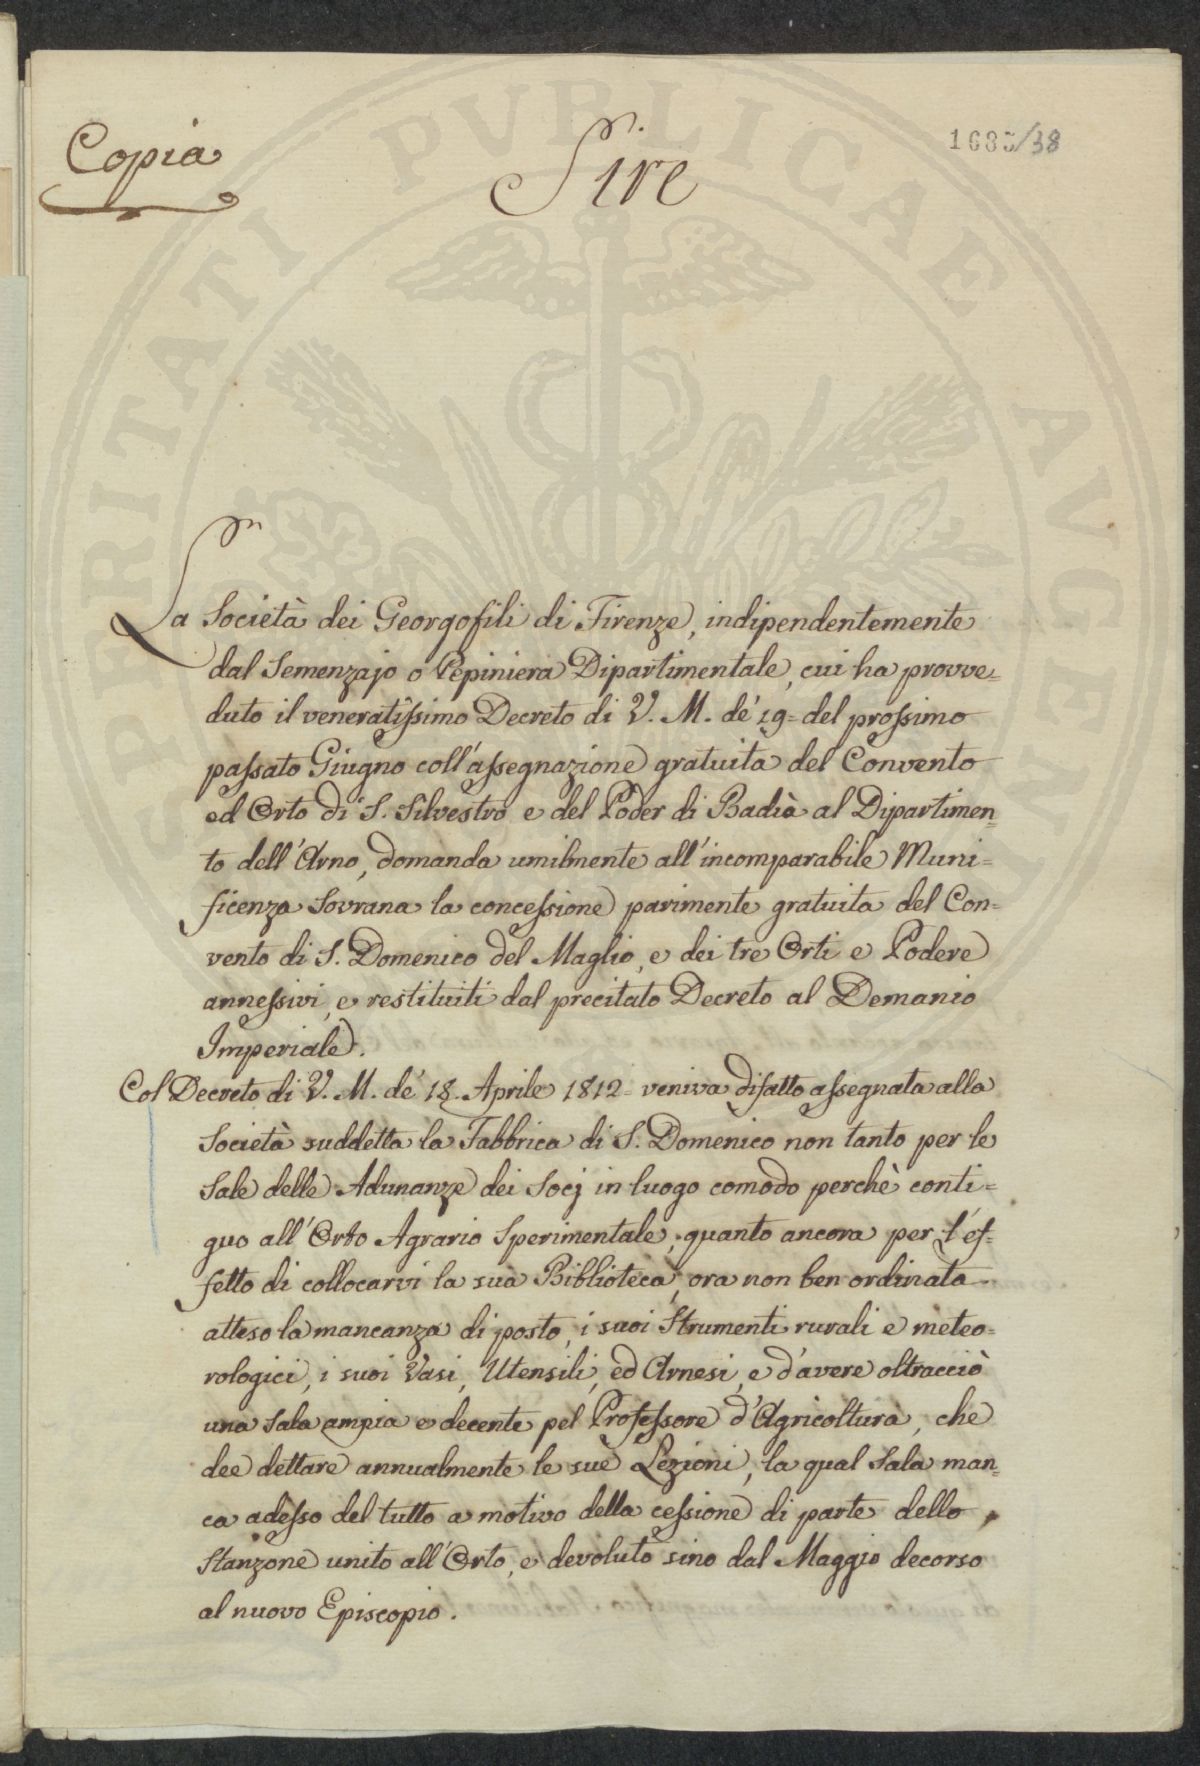 Copia
Sire
1683/38
La Società dei Georgofili di Firenze, indipendentemente
dal Semenzajo o Pepiniera Dipartimentale, cui ha provve=
duto il veneratissimo Decreto di V. M. de' 19= del prossimo
passato Giugno coll'assegnazione gratuita del Convento
ed Orto di S. Silvestro e del Poder di Badia al Dipartimen=
to dell'Arno, domanda umilmente all'incomparabile Muni=
ficenza Sovrana la concessione parimente gratuita del Con=
vento di S. Domenico del Maglio, e dei tre Orti e Podere
annessivi, e restituiti dal precitato Decreto al Demanio
Imperiale.
Col Decreto di V. M. de' 18. Aprile 1812= veniva difatto assegnata alla
Società suddetta la Fabbrica di S. Domenico non tanto per le
Sale delle Adunanze dei Socj in luogo comodo perchè conti=
guo all'Orto Agrario Sperimentale, quanto ancora per l'ef=
fetto di collocarvi la sua Biblioteca, ora non ben ordinata
atteso la mancanza di posto, i suoi Strumenti rurali e meteo=
rologici, i suoi Vasi, Utensili, ed Arnesi, e d'avere oltracciò
una Sala ampia e decente pel Professore d'Agricoltura, che
dee dettare annualmente le sue Lezioni, la qual Sala man=
ca adesso del tutto a motivo della cessione di parte dello
Stanzone unito all'Orto, e devoluto sino dal Maggio decorso
al nuovo Episcopio.